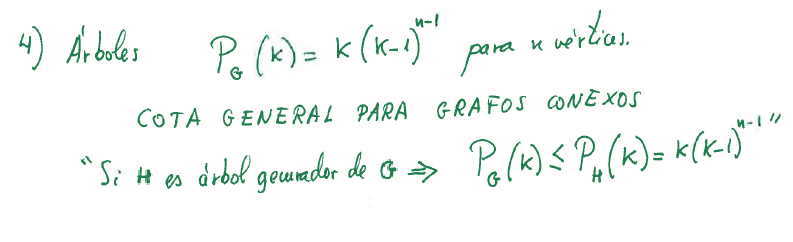 4) Árboles P_G(k) = k(k-1)^{n-1} para n vértices.
COTA GENERAL PARA GRAFOS CONEXOS
"Si H es árbol generador de G ⇒ P_G(k) ≤ P_H(k) = k(k-1)^{n-1}"